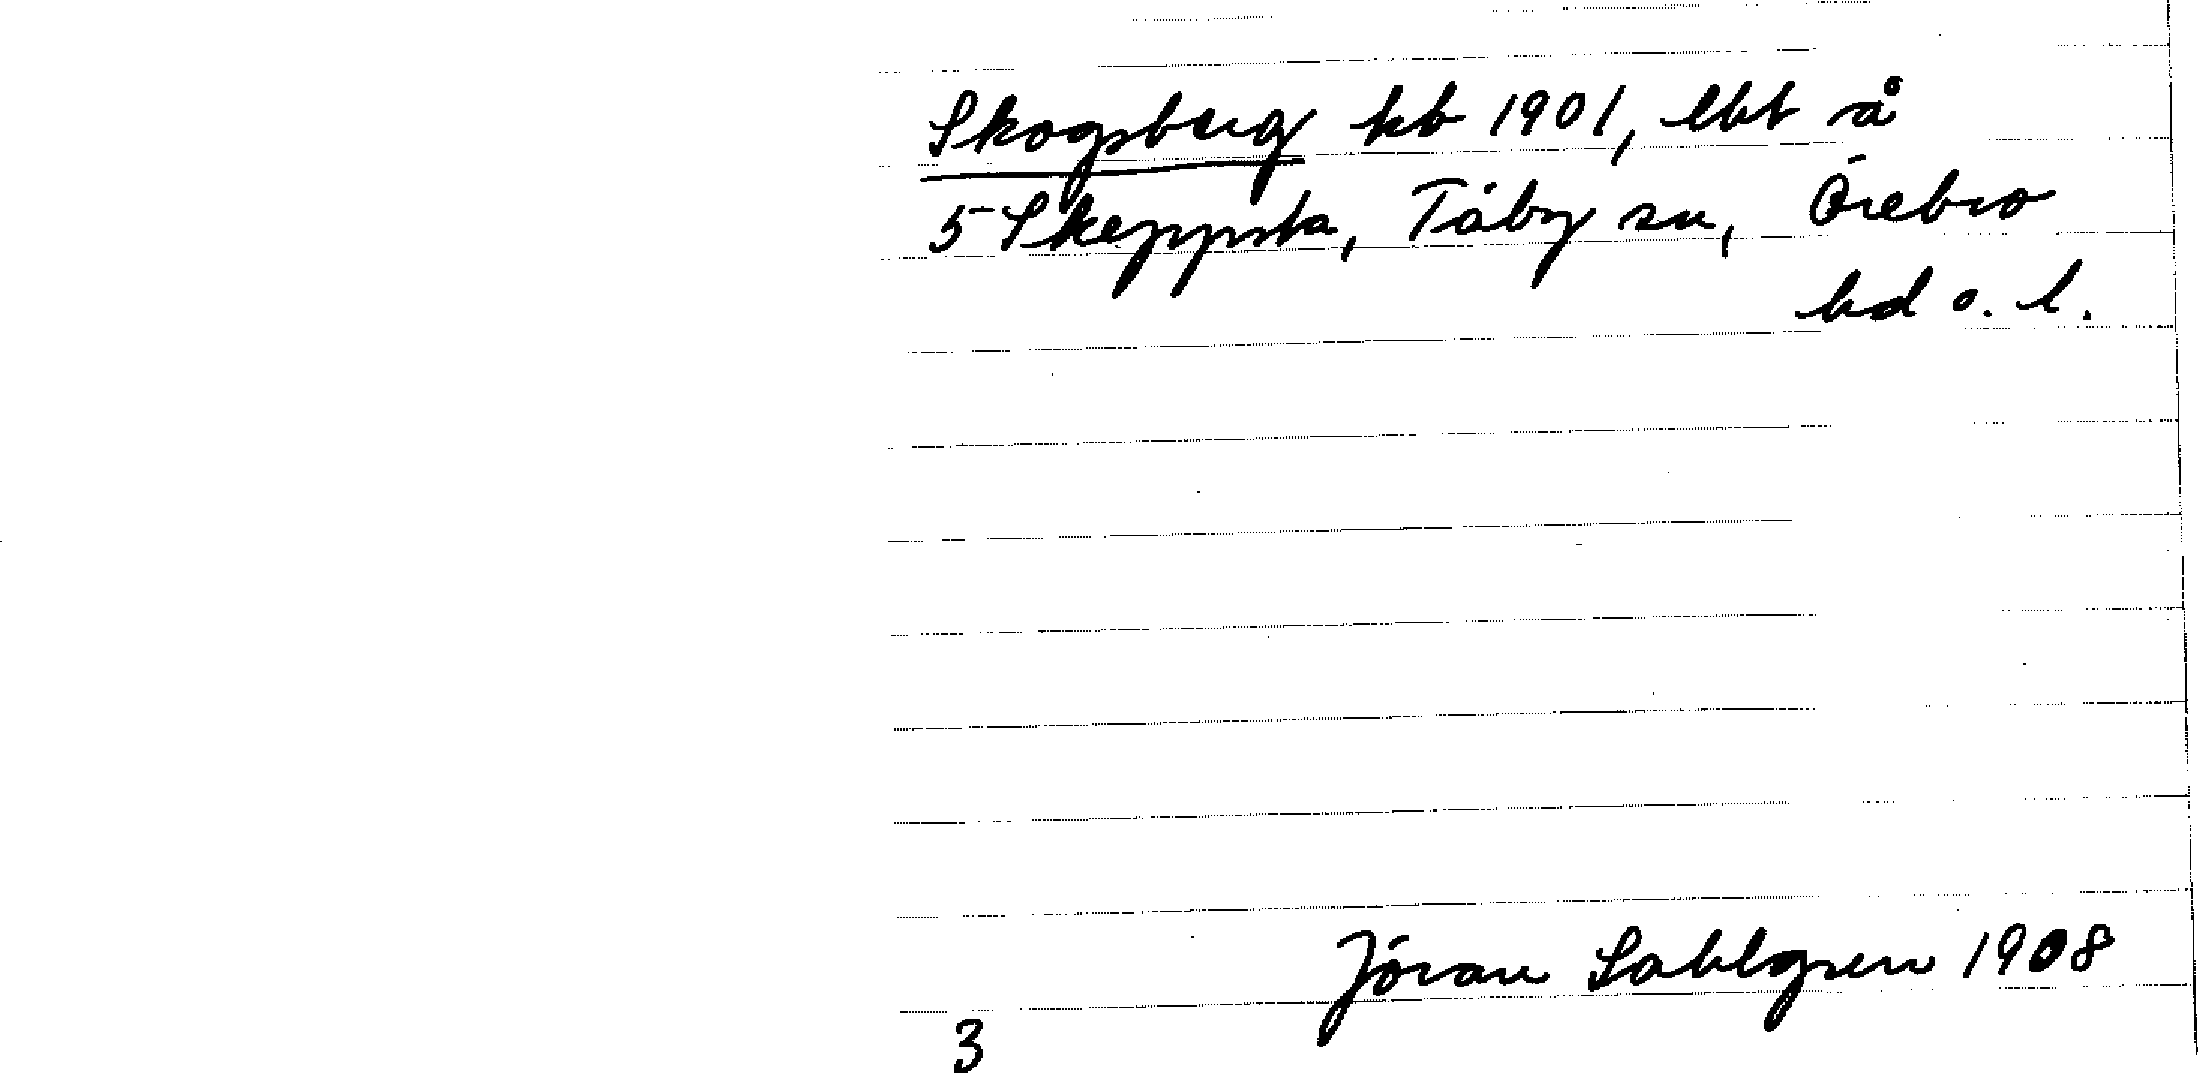 Skogsberg kb 1901, lht å
5 Skeppsta, Täby sn, Örebro
hd o. l.
Jöran Sahlgren 1908
3